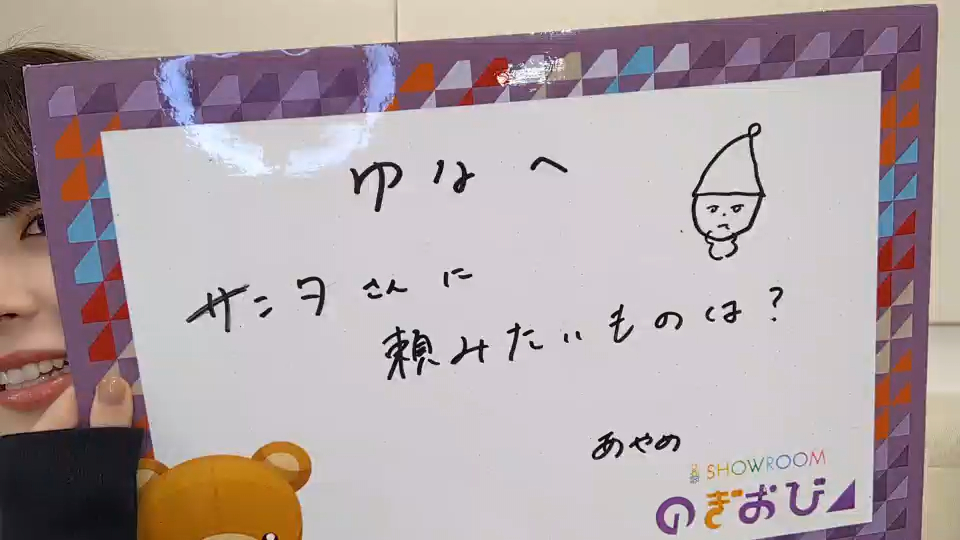 ゆなへ
サンタさんに
頼みたいものは？
あやめ
SHOWROOM
のぎおび